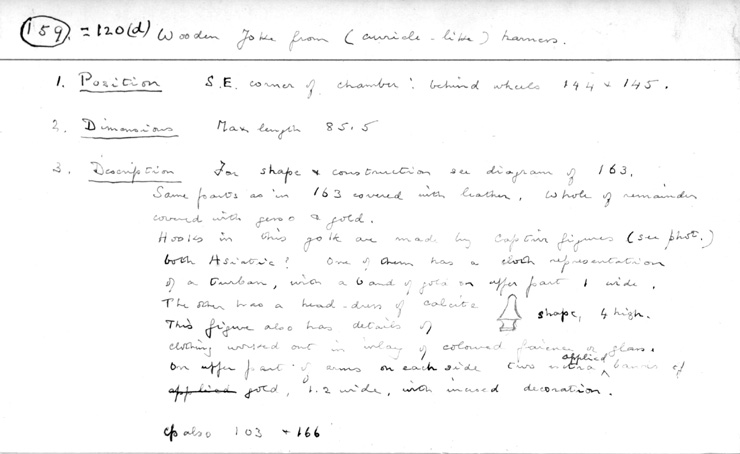 159. = 120(d) Wooden Yoke from (auricle-like) harness.
1. Position S.E. corner of chamber: behind wheels 144 & 145.
2. Dimensions Max length 85.5
3. Description For shape & construction see diagram of 163.
Same parts as in 163 covered with leather, whole of remainder
covered with gesso & gold.
Hooks in this yoke are made by Captive figures (see phot.)
both Asiatic! One of them has a cloth representation
of a turban, with a band of gold on upper part 1 wide.
The other has a head-dress of calcite shape, 4 high.
This figure also has details of
clothing worked out in inlay of coloured faience or glass.
On upper part of arms on each side two extra applied bands of
applied gold, 1.2 wide, with incised decoration.
cp also 103 & 166